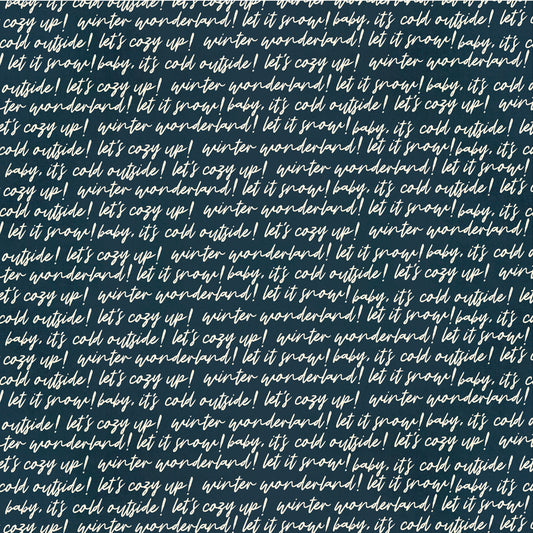 baby, it's cold outside! let's cozy up! winter wonderland! let it snow! baby, it's cold outside! let's
cozy up! winter wonderland! let it snow! baby, it's cold
cold outside! let's cozy up! winter wonderland! let it snow! baby, it's
! let it snow! baby, it's cold outside! let's cozy up! winter wonderland!
outside! let's cozy up! winter wonderland! let it snow! baby, it's cold
ter wonderland! let it snow! baby, it's cold outside! let's cozy up! wint
et's cozy up! winter wonderland! let it snow! baby, it's cold outside! let
cold outside! let's cozy up! winter wonderland! let it snow! baby, it's
baby, it's cold outside! let's cozy up! winter wonderland! let it snow!
cozy up! winter wonderland! let it snow! baby, it's cold outside! let's
cold outside! let's cozy up! winter wonderland! let it snow! baby, it's
! let it snow! baby, it's cold outside! let's cozy up! winter wonderland!
outside! let's cozy up! winter wonderland! let it snow! baby, it's cold
ter wonderland! let it snow! baby, it's cold outside! let's cozy up! wint
et's cozy up! winter wonderland! let it snow! baby, it's cold outside! let
cold outside! let's cozy up! winter wonderland! let it snow! baby, it's
baby, it's cold outside! let's cozy up! winter wonderland! let it snow!
cozy up! winter wonderland! let it snow! baby, it's cold outside! let's
cold outside! let's cozy up! winter wonderland! let it snow! baby, it's
! let it snow! baby, it's cold outside! let's cozy up! winter wonderland!
outside! let's cozy up! winter wonderland! let it snow! baby, it's cold
ter wonderland! let it snow! baby, it's cold outside! let's cozy up! wint
et's cozy up! winter wonderland! let it snow! baby, it's cold outside! let
cold outside! let's cozy up! winter wonderland! let it snow! baby, it's
baby, it's cold outside! let's cozy up! winter wonderland! let it snow!
cozy up! winter wonderland! let it snow! baby, it's cold outside! let's